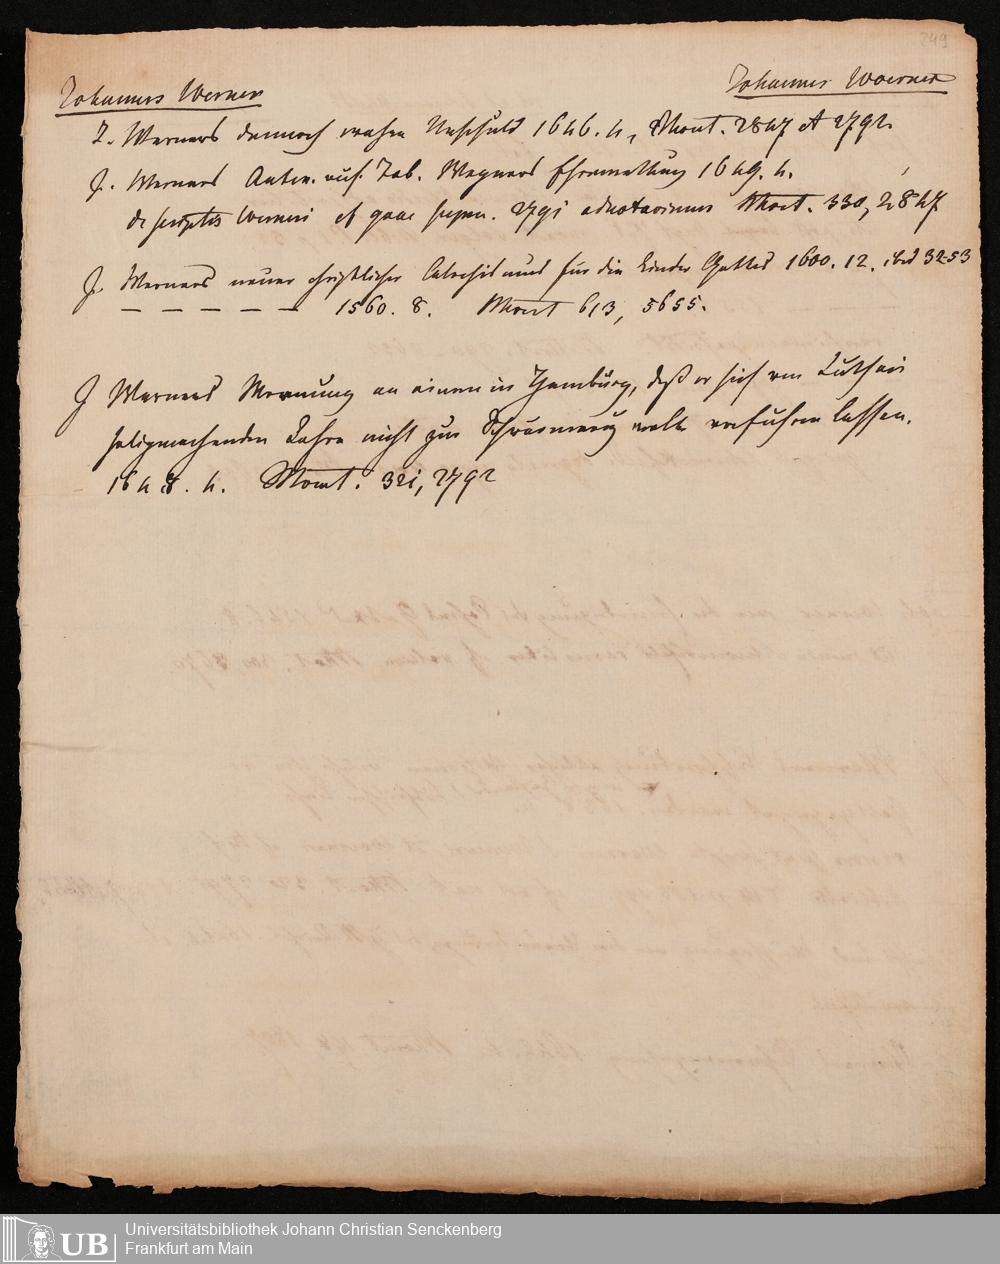 249
Johannes Werner
Johannes Woerner
J. Werners dennoch wahre Unschuld 1646. 4, Mscpt. 2847 et 2792.
J. Werners Antw. auf Tob. Wagners Ehrenrettung 1649. 4.
de scriptis Werneri et quae supra. 2791 adnotavimus 330, 2847
J. Werners neuer christlicher Catechismus für die Kinder Gottes 1600. 12. ibid 3253
— — — — — 1560. 8. 613, 5655.
J Werners Warnung an einen in Hamburg, daß er sich von Lutheri
seligmachenden Lehre nicht zur Schwärmerey wolle verführen lassen.
1648. 4. 321, 2792
UB
Universitätsbibliothek Johann Christian Senckenberg
Frankfurt am Main